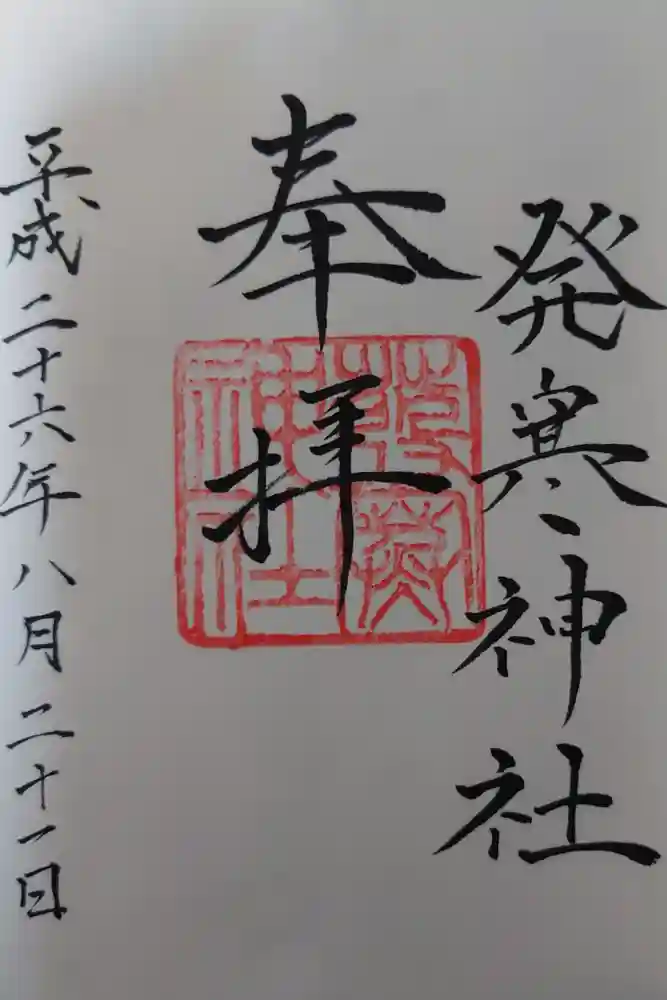 発寒神社
奉拝
發寒神社
平成二十六年八月二十一日